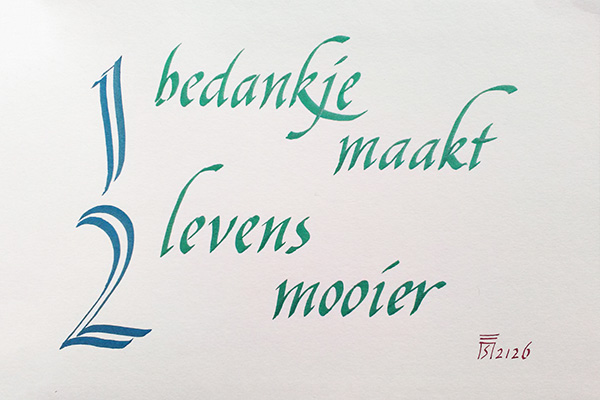 1 bedankje
maakt
2 levens
mooier
2126